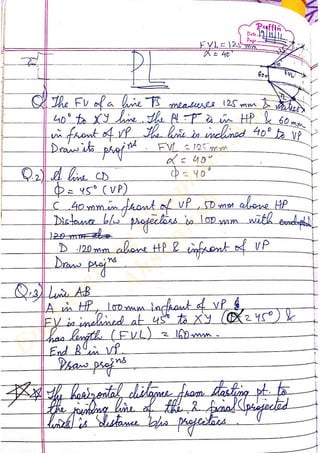 FVL = 125 mm
α = 40°
Puffin
Date
Page
FVL
PL
Q. The FV of a line PB measures 125 mm & makes
40° to XY line. The pt P is in HP & 60 mm
in front of VP. The line is inclined 40° to VP
Draw its projns. FVL = 125 mm
α = 40°
Φ = 40°
Q.2) A line CD
Φ = 45° (VP)
C 40 mm in front of VP, 50 mm above HP
Distance b/w projectors is 100 mm with endpts
120 mm
D 120 mm above HP & infront of VP
Draw projns
Q.3) Line AB
A in HP, 100 mm infront of VP &
FV is inclined at 45° to XY (α = 45°) &
has length (FVL) = 160 mm.
End B in VP
Draw projns
The horizontal distance from starting pt. to
the joining line of the 2 final (projected
lines) is distance b/w projectors.